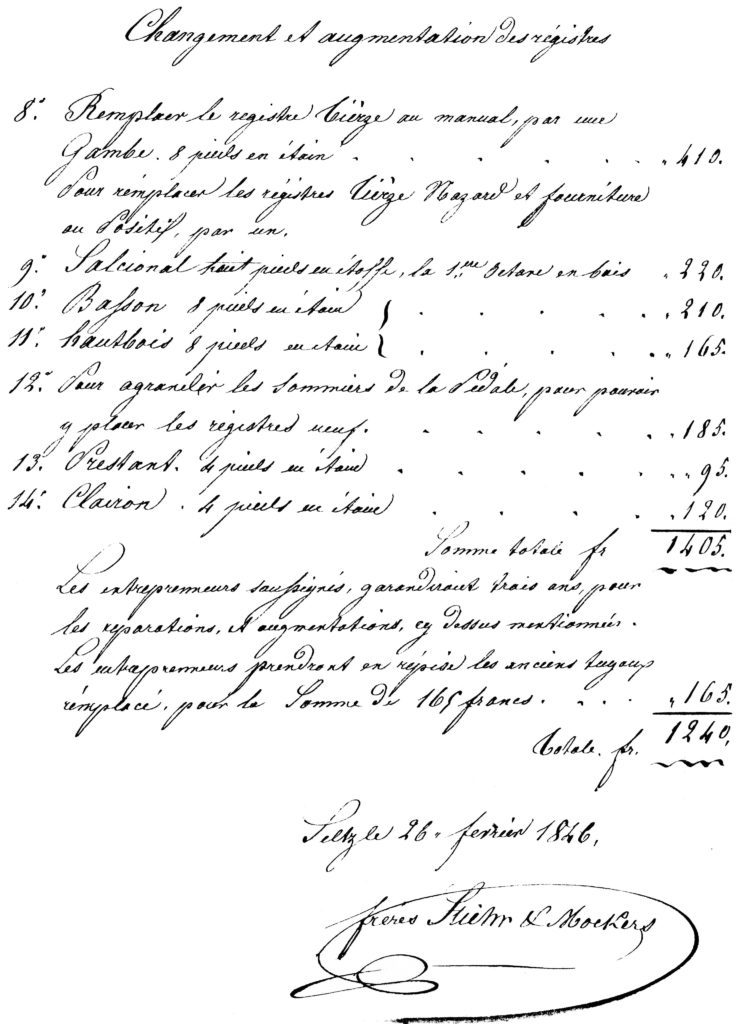 Changement et augmentation des régistres
8°. Remplacer le registre Tièrze au manual, par une
Gambe. 8 pieds en étain . . . . . . „ 410.
Pour remplacer les régistres Tièrze Nazard et fourniture
au Positif, par un.
9° Salcional huit pieds en étoffe, la 1.re Octave en bois „ 220.
10° Basson 8 pieds en étain } . . . . . „ 210.
11° hautbois 8 pieds en étain } . . . . . „ 165.
12° Pour agrandir les Sommiers de la Pédale, pour pouvoir
y placer les régistres neuf. . . . . . „ 185.
13. Prestant. 4 pieds en étain . . . . . „ 95.
14° Clairon. 4 pieds en étain . . . . „ 120.
Somme totale fr 1405.
Les entreprenneurs soussignés, garandiront trois ans, pour
les reparations, et augmentations, cy dessus mentionnées.
Les entreprenneurs prendront en répise les anciens tuyaux
rémplacé, pour la Somme de 165 francs. . . . „ 165.
Totale. fr. 1240,
Seltz le 26. fevrier 1846,
frères Stiehr & Mockers